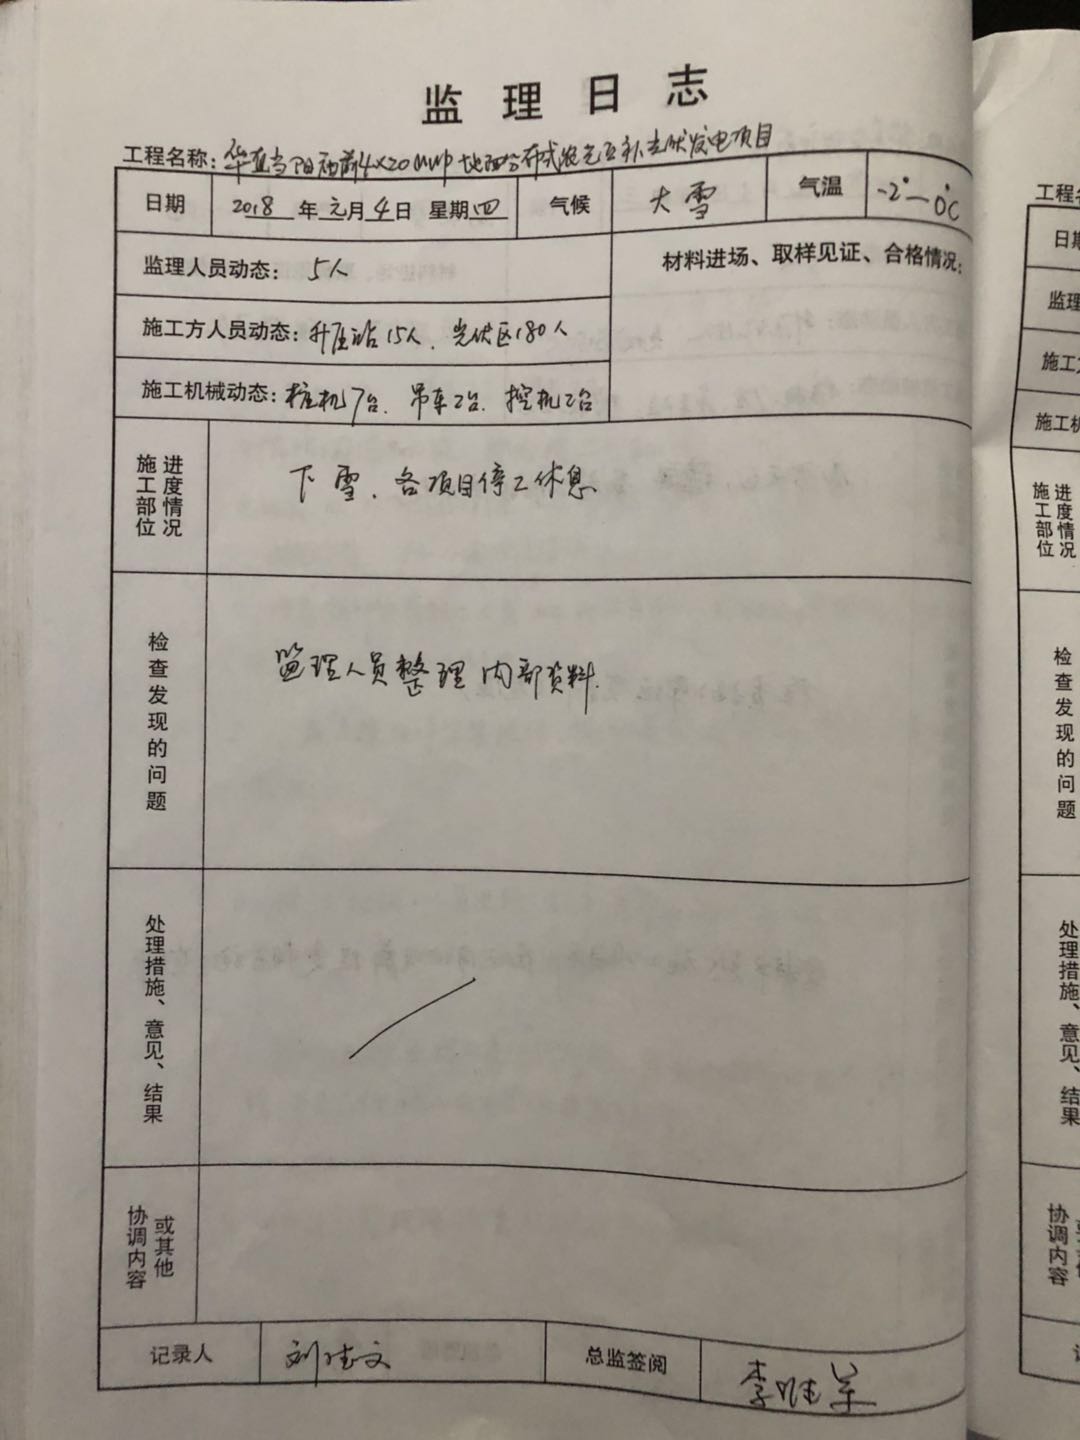 监理日志
工程名称：华直当阳 4×20MWp地面分布式农光互补光伏发电项目
日期 2018年元月4日 星期四 气候 大雪 气温 -2°—0℃
监理人员动态：5人
材料进场、取样见证、合格情况：
施工方人员动态：升压站15人、光伏区180人
施工机械动态：桩机7台、吊车2台、挖机2台
施工部位
进度情况
下雪、各项目停工休息
检查发现的问题
监理人员整理内部资料.
处理措施、意见、结果
协调内容
或其他
记录人 刘 文 总监签阅 李
工程名
日期
监理
施工方
施工机
施工部位
进度情况
检查发现的问题
处理措施、意见、结果
协调内容